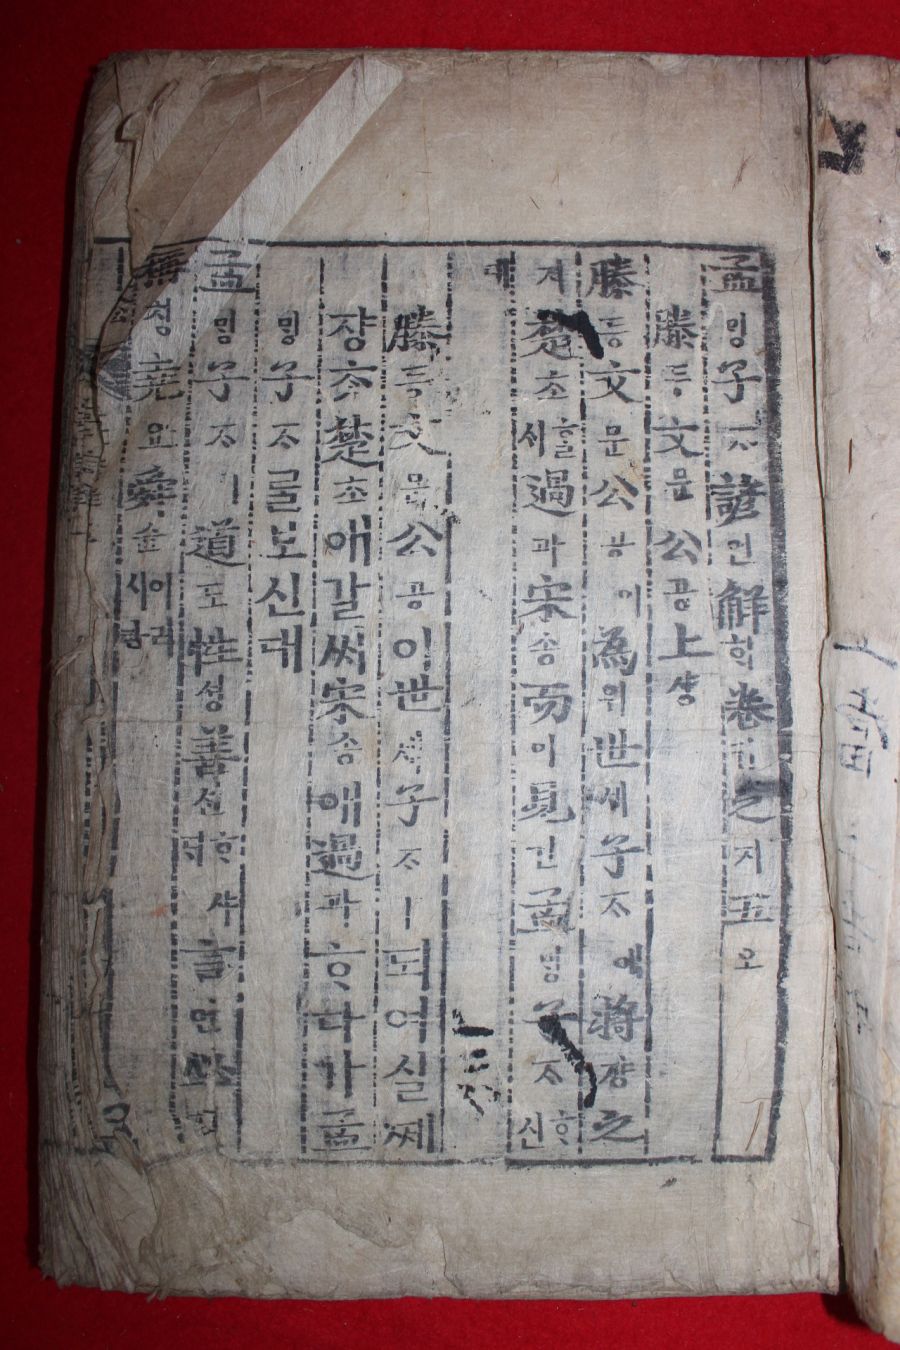 孟ᄆᆡᆼ子ᄌᆞ諺언解ᄒᆡ卷권之지五오
滕등文문公공上샹
滕등文문公공이爲위世셰子ᄌᆞ에將쟝之
지楚초ᄒᆞᆯ시過과宋송而이見견孟ᄆᆡᆼ子ᄌᆞᄒᆞ신
대
滕등文문公공이世셰子ᄌᆞㅣ되여실ᄶᅦ
쟝ᄎᆞᆺ楚초애갈ᄊᆡ宋송애過과ᄒᆞ다가孟
ᄆᆡᆼ子ᄌᆞᄅᆞᆯ보신대
孟ᄆᆡᆼ子ᄌᆞㅣ道도性셩善션ᄒᆞ샤ᄃᆡ言언必필
稱칭堯요舜슌이러시다